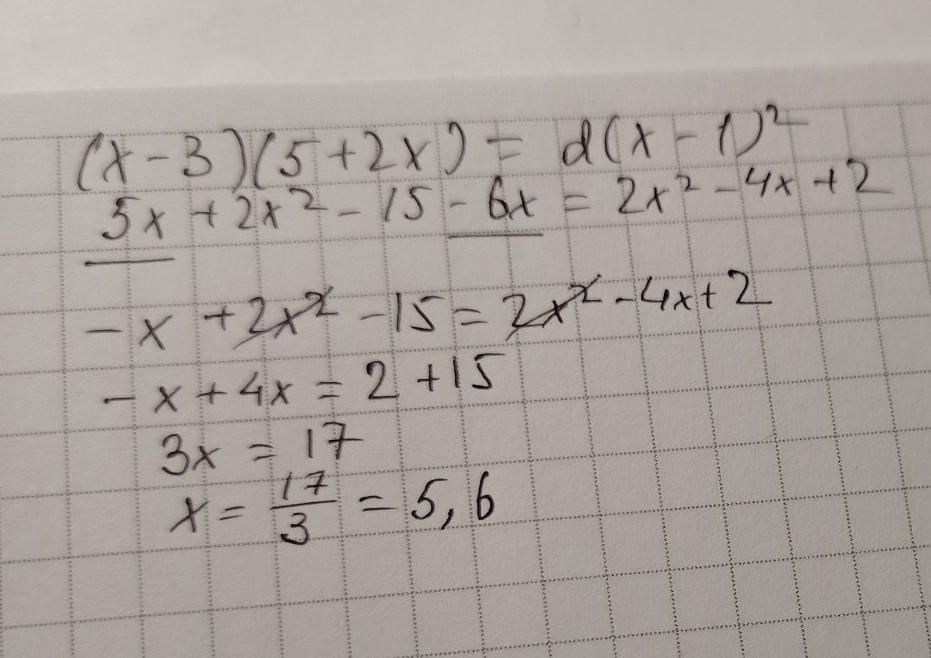 (x-3)(5+2x) = 2(x-1)²
5x+2x²-15-6x = 2x²-4x+2
-x+2x²-15=2x²-4x+2
-x+4x=2+15
3x=17
x=17/3=5,6